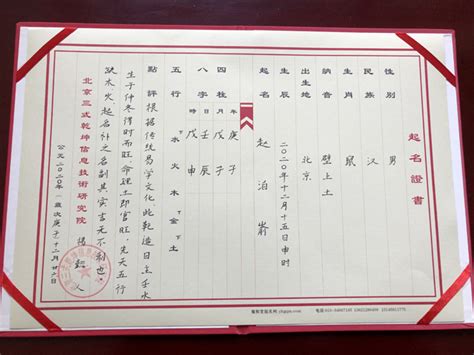 起名證書
性別 男
民族 汉
生肖 鼠
納音 壁上土
出生地 北京
生辰 二〇二〇年十二月十五日申时
起名 赵泊
四柱 年 庚子 月 戊子
八字 日 壬辰 時 戊申
五行 水 火 木 金 土
點評 根据传统易学文化，此乾造日主壬水
生于仲冬得时而旺，命理土即官旺，先天五行
缺木火，起名补之名副其实吉无不利也。
北京三式乾坤信息技術研究院
公元二〇二〇年（歲次庚子）十二月廿六日